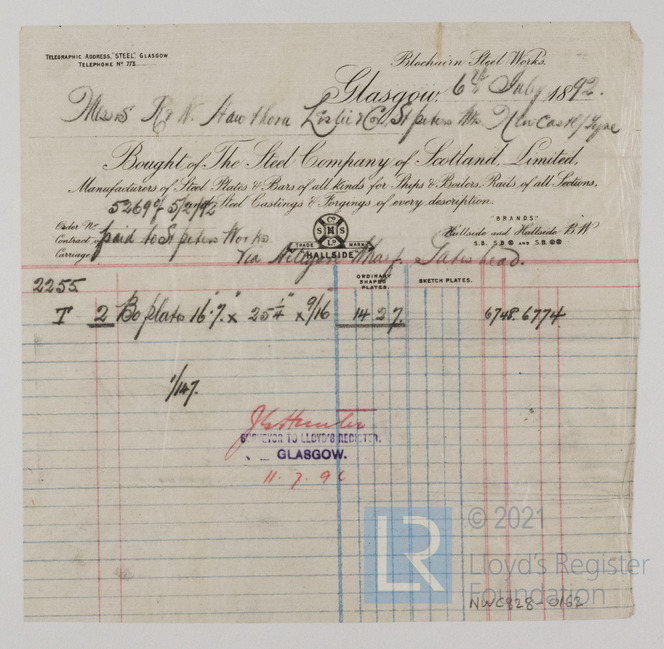 TELEGRAPHIC ADDRESS, "STEEL", GLASGOW
TELEPHONE Nº 773
Blochairn Steel Works.
Glasgow, 6th July 1892.
Messrs R & W. Hawthorn Leslie & Co. St peters Wks Newcastle/Tyne
Bought of The Steel Company of Scotland, Limited,
Manufacturers of Steel Plates & Bars of all kinds for Ships & Boilers, Rails, of all Sections,
and Steel Castings & Forgings of every description.
5269 5/2/92
Order No.
Contract
Carriage
paid to St peters Works
Via Wharf. Gateshead.
S Co S M S Ld
TRADE MARK
HALLSIDE
"BRANDS"
Hallside and Hallside B.W
S.B. S.B © AND S.B ©©
ORDINARY SHAPED PLATES.
SKETCH PLATES.
2255
T 2 Bo plates 16' 7" x 25 1/4" x 9/16 14 2 7. 6748. 6774
1/147.
J Hunter
SURVEYOR TO LLOYD'S REGISTER.
GLASGOW.
11. 7. 92
LR
© 2021
Lloyd's Register
Foundation
NWC828-0162